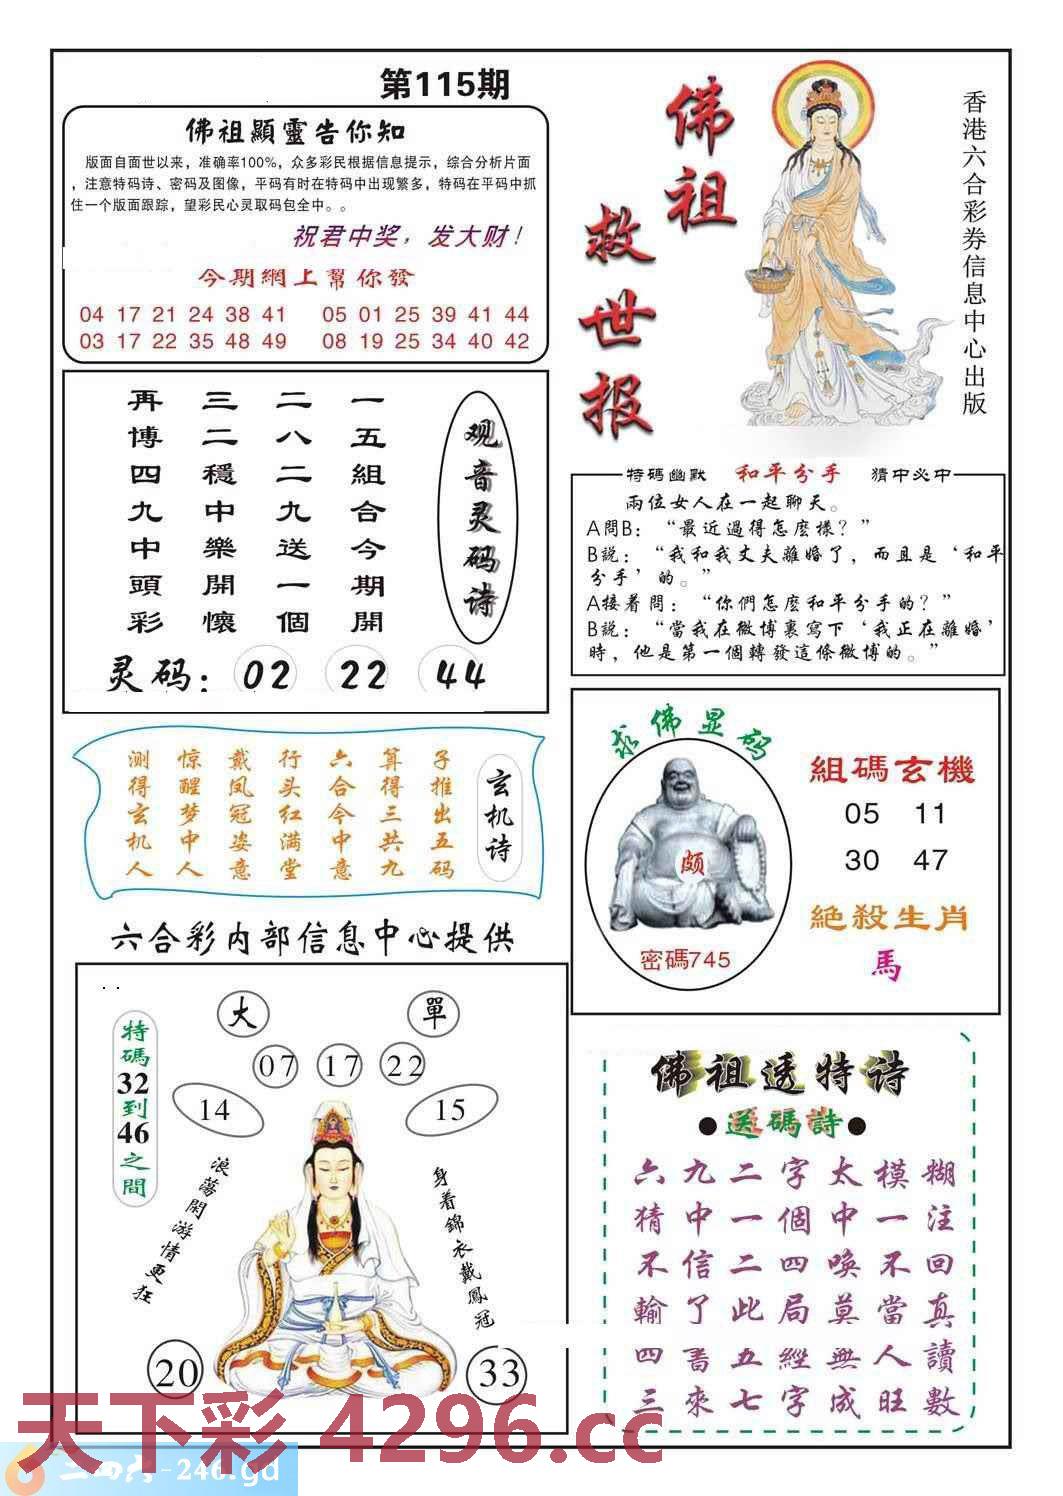 第115期
佛祖顯靈告你知
版面自面世以来，准确率100%，众多彩民根据信息提示，综合分析片面
，注意特码诗、密码及图像，平码有时在特码中出现繁多，特码在平码中抓
住一个版面跟踪，望彩民心灵取码包全中。。
祝君中奖，发大财！
今期網上幫你發
04 17 21 24 38 41 05 01 25 39 41 44
03 17 22 35 48 49 08 19 25 34 40 42
佛祖
救世报
香港六合彩券信息中心出版
观音灵码诗
一五組合今期開
二八二九送一個
三二穩中樂開懷
再博四九中頭彩
灵码：02 22 44
特碼幽默 和平分手 猜中必中
兩位女人在一起聊天。
A問B：“最近過得怎麽樣？”
B説：“我和我丈夫離婚了，而且是‘和平
分手’的。”
A接着問：“你們怎麽和平分手的？”
B説：“當我在微博裏寫下‘我正在離婚’
時，他是第一個轉發這條微博的。”
玄机诗
子推出五码
算得三共九
六合今中意
行头红满堂
戴凤冠姿意
惊醒梦中人
测得玄机人
求佛显码
颇
密碼745
組碼玄機
05 11
30 47
絕殺生肖
馬
六合彩内部信息中心提供
特碼32到46之間
大 單
07 17 22
14 15
浪蕩閑游情更狂
身着錦衣戴鳳冠
20 33
佛祖透特诗
●送碼詩●
六九二字太模糊
猜中一個中一注
不信二四喚不回
輸了此局莫當真
四書五經無人讀
三來七字成旺數
天下彩 4296.cc
二四六-246.gd